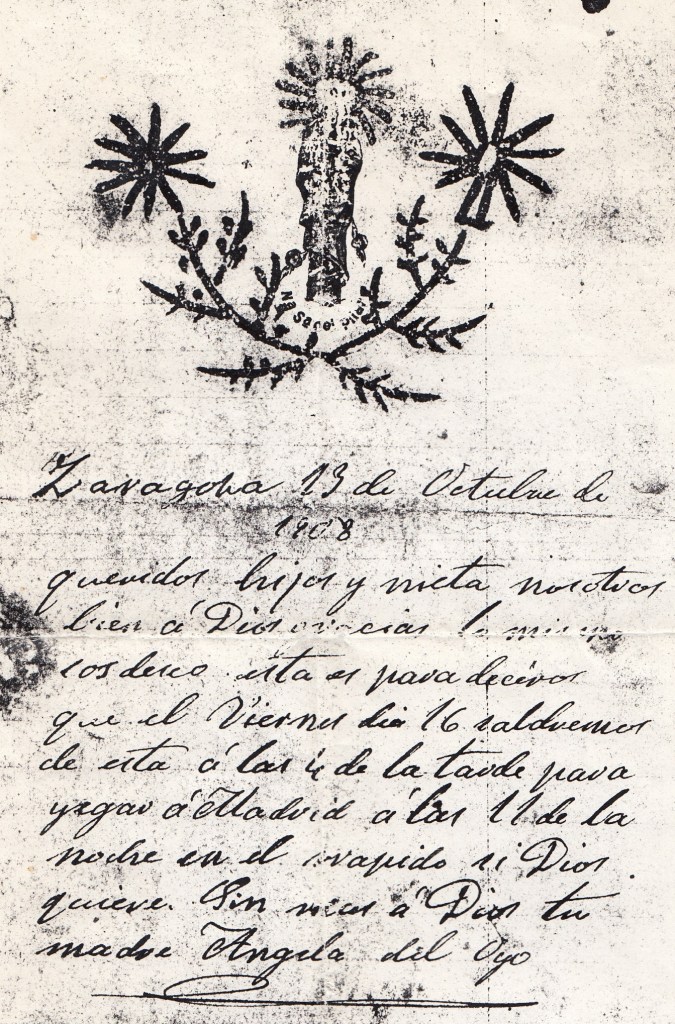 Na Sa del Pilar
Zaragoha 13 de Octubre de
1908
queridos hijos y nieta nosotros
bien á Dios gracias lo mismo
sos deseo esta es para deciros
que el Viernes dia 16 saldremos
de esta á las 4 de la tarde para
yegar á Madrid á las 11 de la
noche en el rapido si Dios
quiere. Sin mas á Dios tu
madre Angela del Oyo